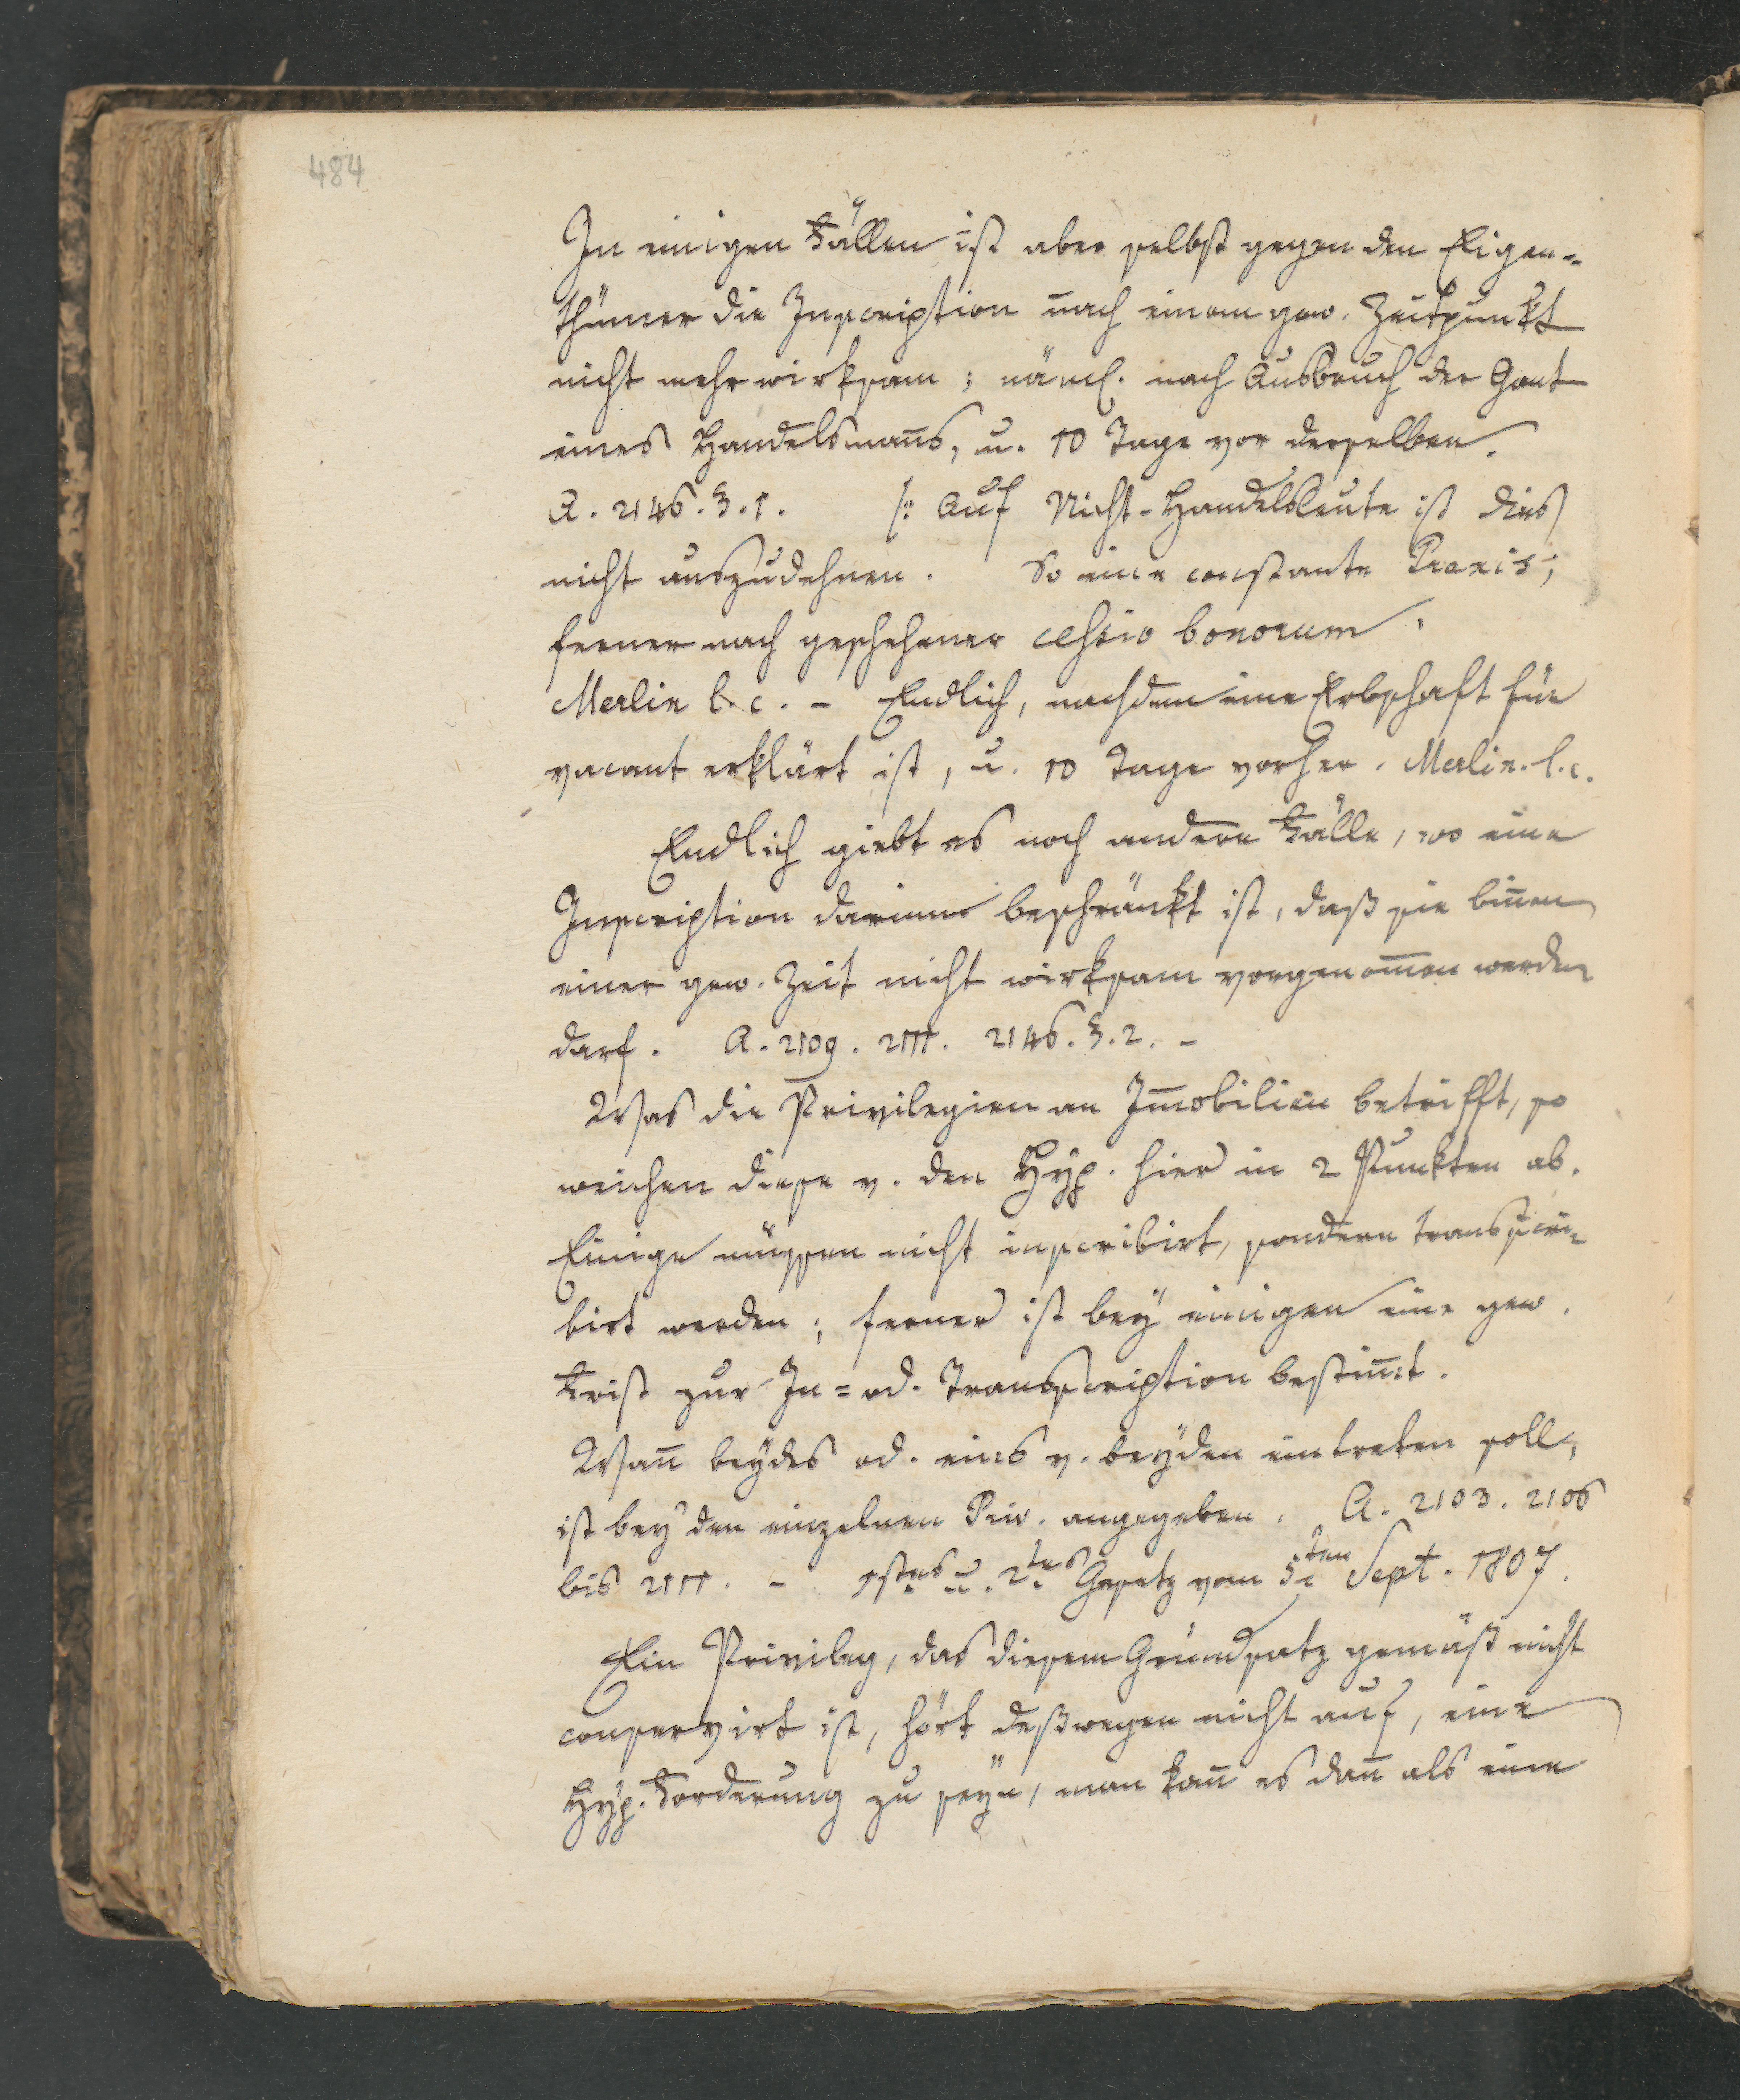 484
In einigen Fällen ist aber selbst gegen den Eigen-
thümer die Inscription nach einem gew. Zeitpunkt
nicht mehr wirksam; näml. nach Ausbruch der Gant
eines Handelsmañs, u. 10 Tage vor derselben.
A. 2146. §. 1. /: Auf Nicht-Handelsleute ist dies
nicht auszudehnen. So eine constante Praxis;
ferner nach geschehener cessio bonorum.
Merlin l. c. – Endlich, nachdem eine Erbschaft für
vacant erklärt ist, u. 10 Tage vorher. Merlin. l. c.
Endlich giebt es noch andere Fälle, wo eine
Inscription darinn beschränkt ist, daß sie biñen
einer gew. Zeit nicht wirksam vorgenom̃en werden
darf. A. 2109. 2111. 2146. §. 2. –
Was die Privilegien an Im̃obilien betrifft, so
weichen diese v. den Hyp. hier in 2 Punkten ab.
Einige müssen nicht inscribirt, sondern transscri-
birt werden; ferner ist bey einigen eine gew.
Frist zur In= od. Transscription bestim̃t.
Wañ beydes od. eins v. beyden eintreten soll,
ist bey den einzelnen Priv. angegeben. A. 2103. 2106
bis 2111. – 1stes u. 2tes Gesetz vom 5ten Sept. 1807.
Ein Privileg, das diesem Grundsatz gemäß nicht
conservirt ist, hört deßwegen nicht auf, eine
Hyp. Forderung zu seyn, man kañ es dañ als eine